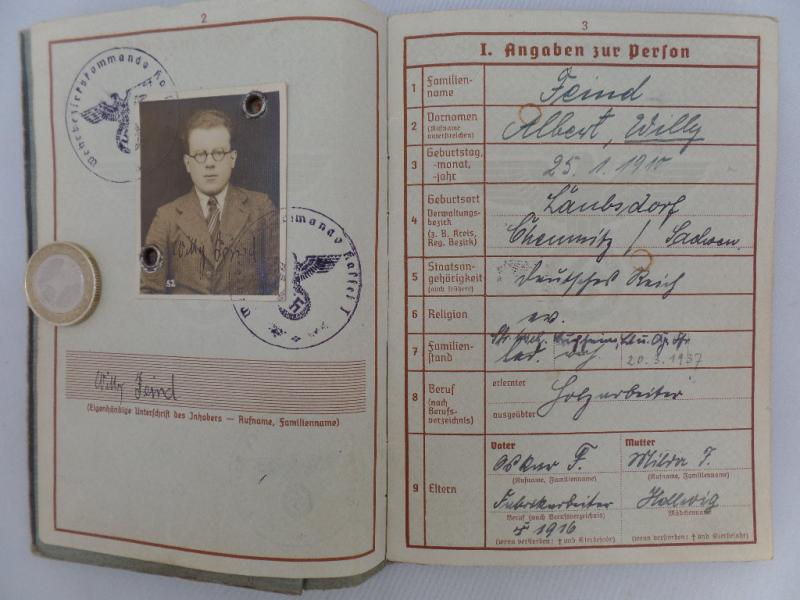 2
Wehrbezirkskommando Ka
52
Willy Feind
Kommando Kassel I
Willy Feind
(Eigenhändige Unterschrift des Inhabers — Rufname, Familienname)
3
I. Angaben zur Person
1 Familien-
name
Feind
2 Vornamen
(Rufname
unterstreichen)
Albert, Willy
3 Geburtstag,
-monat,
-jahr
25. 1. 1910
4 Geburtsort
Verwaltungs-
bezirk
(z. B. Kreis,
Reg. Bezirk)
Chemnitz / Sachsen
5 Staatsan-
gehörigkeit
(auch frühere)
Deutsches Reich
6 Religion
ev.
7 Familien-
stand
led.
20. 3. 1937
8 Beruf
(nach
Berufs-
verzeichnis)
erlernter
ausgeübter
Holzarbeiter
9 Eltern
Vater
Oskar F.
(Rufname, Familienname)
Fabrikarbeiter
Beruf (nach Berufsverzeichnis)
† 1916
(wenn verstorben: † und Sterbejahr)
Mutter
Milda F.
(Rufname, Familienname)
Hallwig
Mädchenname
(wenn verstorben: † und Sterbejahr)